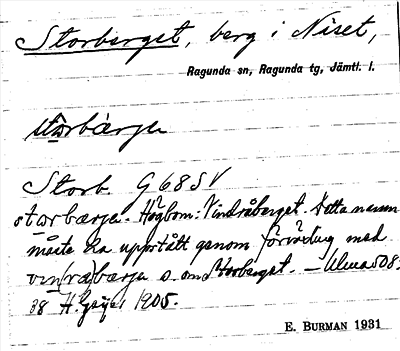 Storberget, berg i Niset,
Ragunda sn, Ragunda tg, Jämtl. l.
storbàrję
Storb. G 68 SV
storbærje. Högbom: Vindråberget. Detta namn
måste ha uppstått genom förväxling med
vin(rå)bærje o. om Storberget. – Ulma 508:
38 H. Geijer 1905.
E. BURMAN 1931